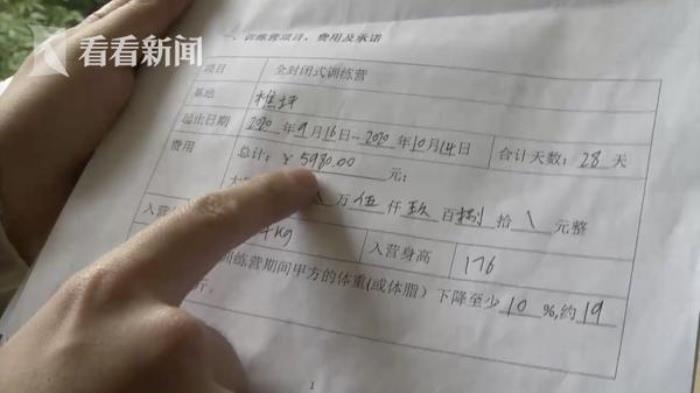 看看新闻
一、训练营项目、费用及承诺
项目 全封闭式训练营
基地 樵坪
起止日期 2020 年 9 月 16 日-2020 年 10 月 14 日 合计天数: 28 天
费用 总计: ¥ 5980.00 元;
大 万 伍 仟 玖 百 捌 拾 \ 元整
入营 kg 入营身高 176
训练营期间甲方的体重(或体脂)下降至少 10 %,约 19
斤。
1